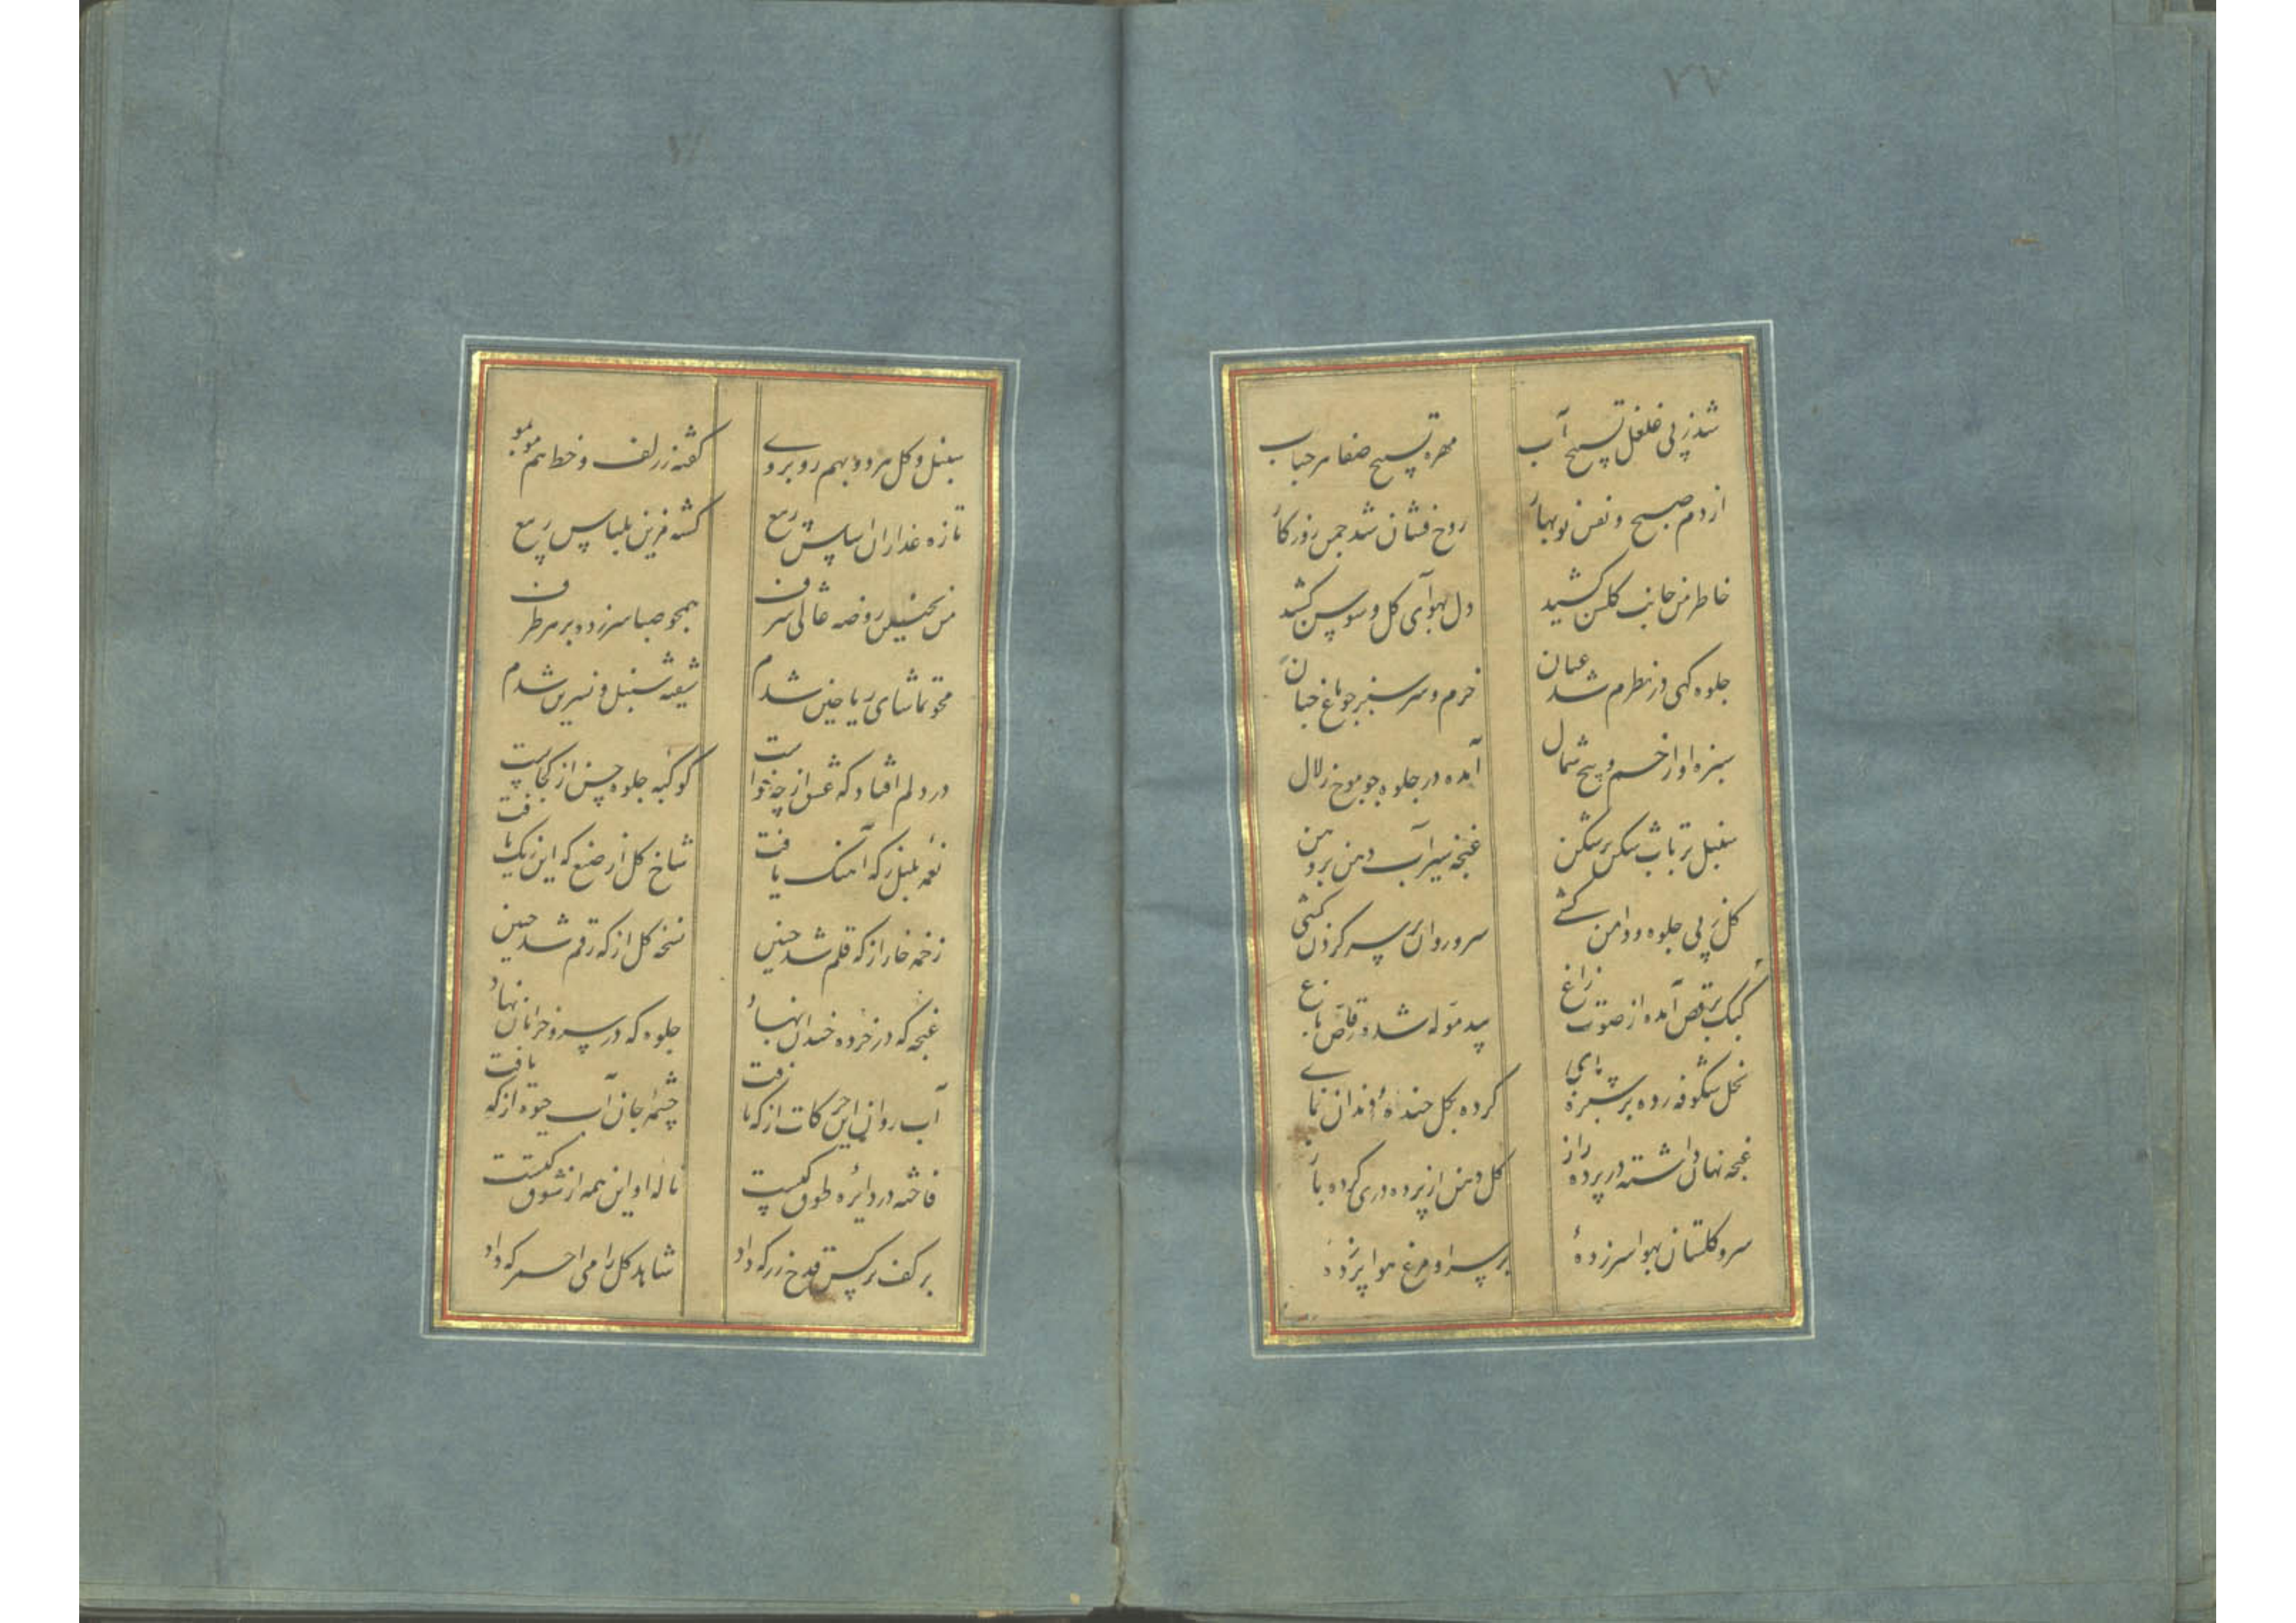 ۷۷
شد ز پی غلغل تسبیح آب
مهره تسبیح صفا هر حباب
از دم صبح و نفس نوبهار
روح فشان شد چمن روزکار
خاطر من جانب کلشن کشید
دل بهوای کل و سوسن کشید
جلوه کهی در نظرم شد عیان
خرم و سرسبز چو باغ جنان
سبزه او از خم و پیچ شمال
آمده در جلوه چو موج زلال
سنبل تر تاب شکن بر شکن
غنچه سیراب دهن بر دهن
کل ز پی جلوه و دامن کشی
سرو روان بر سر کردن کشی
کبک برقص آمده از صوت زاغ
بید موله شده رقاص باغ
نخل شکوفه زده بر سبزه پای
کرده بکل خندهٔ دندان نمای
غنچه نهان داشته در پرده راز
کل دهن از پرده دری کرده باز
سرو کلستان بهوا سر زدهٔ
بر سر او مرغ هوا پر زدهٔ
سنبل و کل هر دو بهم روبروے
کفته ز زلف و خط هم موبمو
تازه عذاران اساس ربیع
کشته مزین بلباس ربیع
من بچنین روضه عالی شرف
همچو صبا سر زده بر هر طرف
محو تماشای ریاحین شدم
شیفته سنبل و نسرین شدم
در دلم افتاد که عشق از چه خواست
کوکبه جلوه حسن از کجاست
نغمه بلبل ز که آهنک یافت
شاخ کل از صنع که این رنک یافت
زخمه خار از که قلم شد چنین
نسخه کل از که رقم شد چنین
غنچه که در خرده خندان نهاد
جلوه که در سرو خرامان نهاد
آب روان این حرکات از که یافت
چشمه جان آب حیوة از که یافت
فاخته در دایرهٔ طوق کیست
نالهٔ او این همه از شوق کیست
بر کف نرکس قدح زر که داد
شاهد کل را می احمر که داد